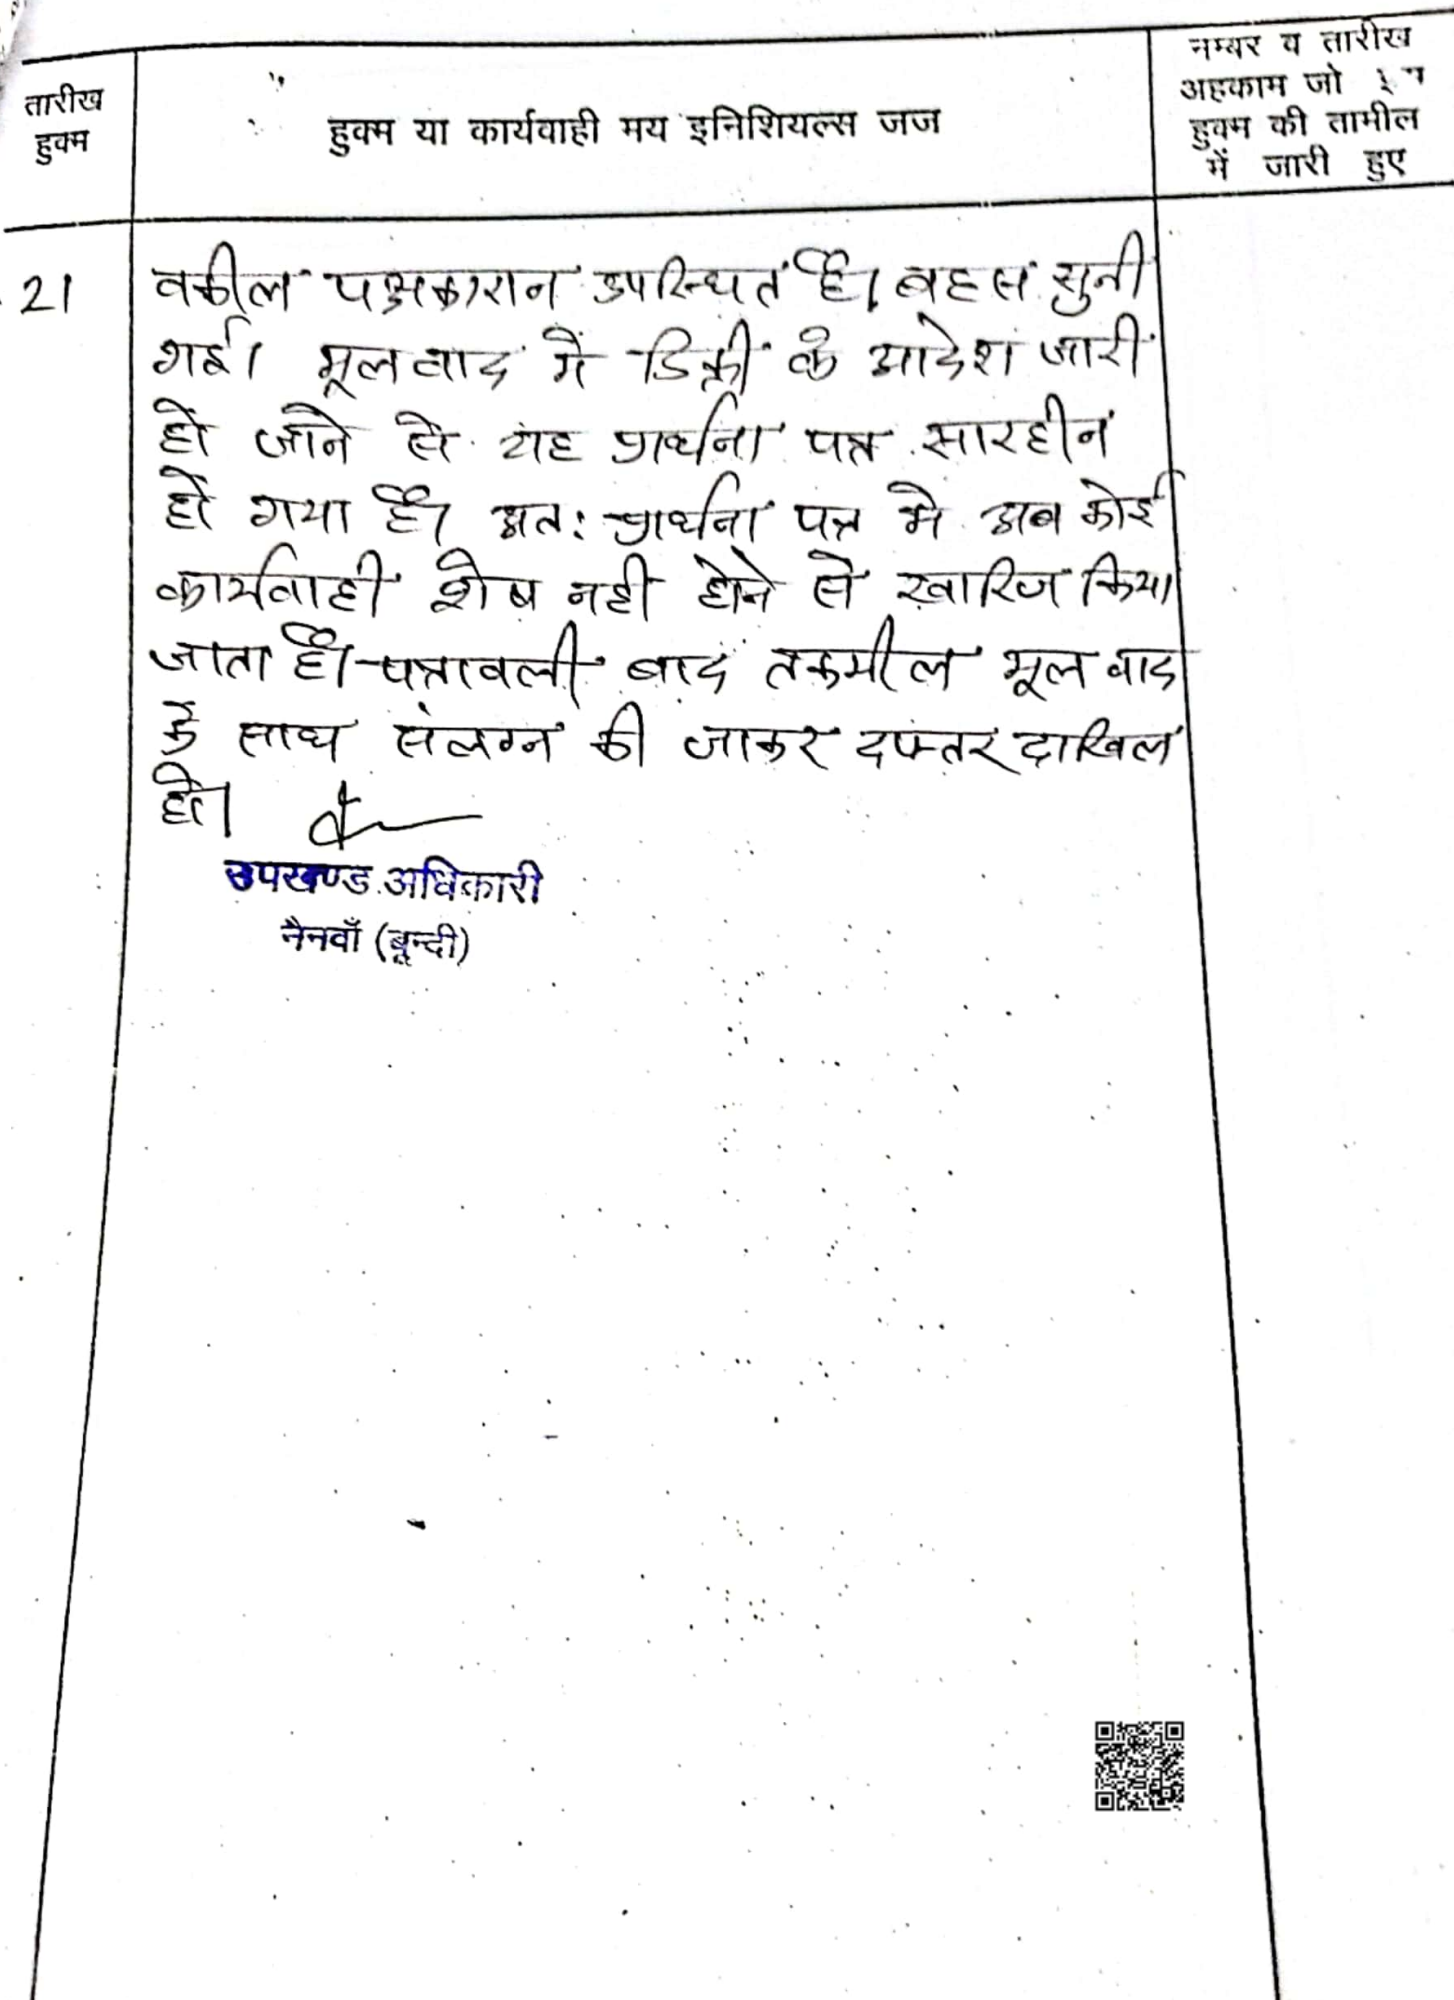 तारीख
हुक्म
हुक्म या कार्यवाही मय इनिशियल्स जज
नम्बर व तारीख
अहकाम जो
हुक्म की तामील
में जारी हुए
21
वकील पक्षकारान उपस्थित है। बहस सुनी
गई। मूल वाद में डिक्री के आदेश जारी
हो जाने से यह प्रार्थना पत्र सारहीन
हो गया है। अतः प्रार्थना पत्र मे अब कोई
कार्यवाही शेष नही होने से खारिज किया
जाता है। पत्रावली बाद तकमील मूल वाद
के साथ संलग्न की जाकर दफ्तर दाखिल
हो।
उपखण्ड अधिकारी
नैनवाँ (बून्दी)